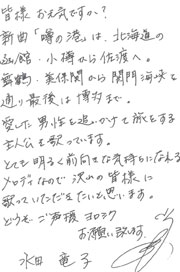 皆様 お元気ですか?
新曲「噂の港」は、北海道の
函館・小樽から佐渡へ。
舞鶴、美保関から関門海峡を
通り最後は博多まで。
愛した男性を追いかけて旅をする
主人公を歌っています。
とても明るく前向きな気持ちになれる
メロディなので沢山の皆様に
歌っていただきたいと思います。
どうぞご声援ヨロシク
お願い致します。
水田竜子